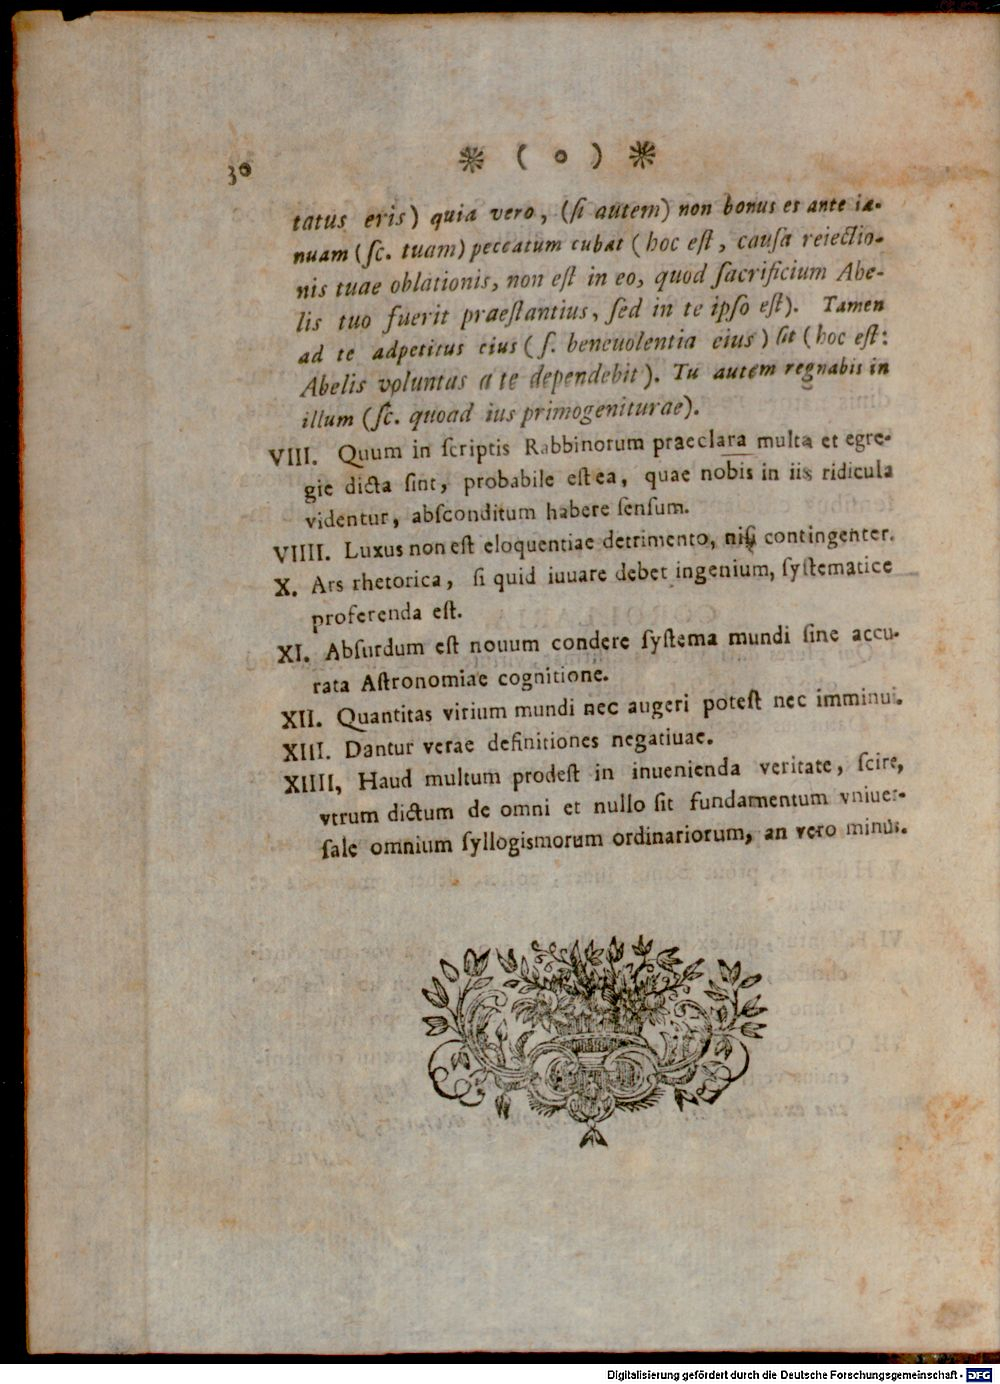 30 * ( o ) *
tatus eris) quia vero, (ſi autem) non bonus es ante ia-
nuam (ſc. tuam) peccatum cubat (hoc eſt, cauſa reiectio-
nis tuae oblationis, non eſt in eo, quod ſacrificium Abe-
lis tuo fuerit praeſtantius, ſed in te ipſo eſt). Tamen
ad te adpetitus eius (ſ. beneuolentia eius) ſit (hoc eſt:
Abelis voluntas a te dependebit). Tu autem regnabis in
illum (ſc. quoad ius primogeniturae).
VIII. Quum in ſcriptis Rabbinorum praeclara multa et egre-
gie dicta ſint, probabile eſt ea, quae nobis in iis ridicula
videntur, abſconditum habere ſenſum.
VIIII. Luxus non eſt eloquentiae detrimento, niſi contingenter.
X. Ars rhetorica, ſi quid iuuare debet ingenium, ſyſtematice
proferenda eſt.
XI. Abſurdum eſt nouum condere ſyſtema mundi ſine accu-
rata Aſtronomiae cognitione.
XII. Quantitas virium mundi nec augeri poteſt nec imminui.
XIII. Dantur verae definitiones negatiuae.
XIIII, Haud multum prodeſt in inuenienda veritate, ſcire,
vtrum dictum de omni et nullo ſit fundamentum vniuer-
ſale omnium ſyllogismorum ordinariorum, an vero minus.
Digitalisierung gefördert durch die Deutsche Forschungsgemeinschaft - DFG